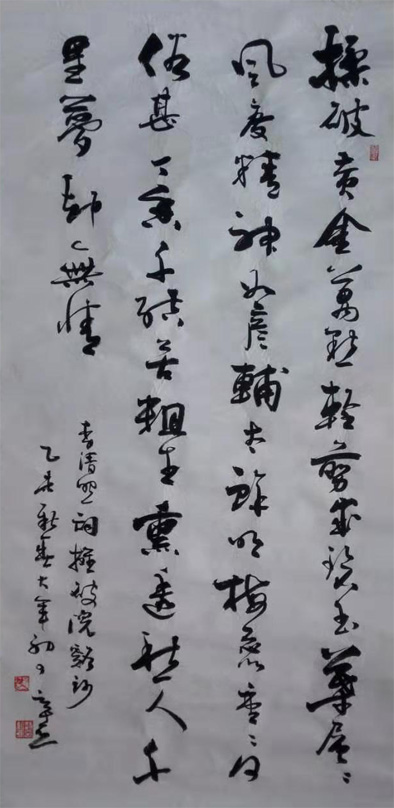 揉破黄金萬點輕剪成碧玉葉層〻
風度精神如彦輔太鮮明梅蕊重〻何
俗甚丁香千結苦粗生熏透愁人千
里夢却〻無情
李清照詞攤破浣谿沙
乙新春大年初